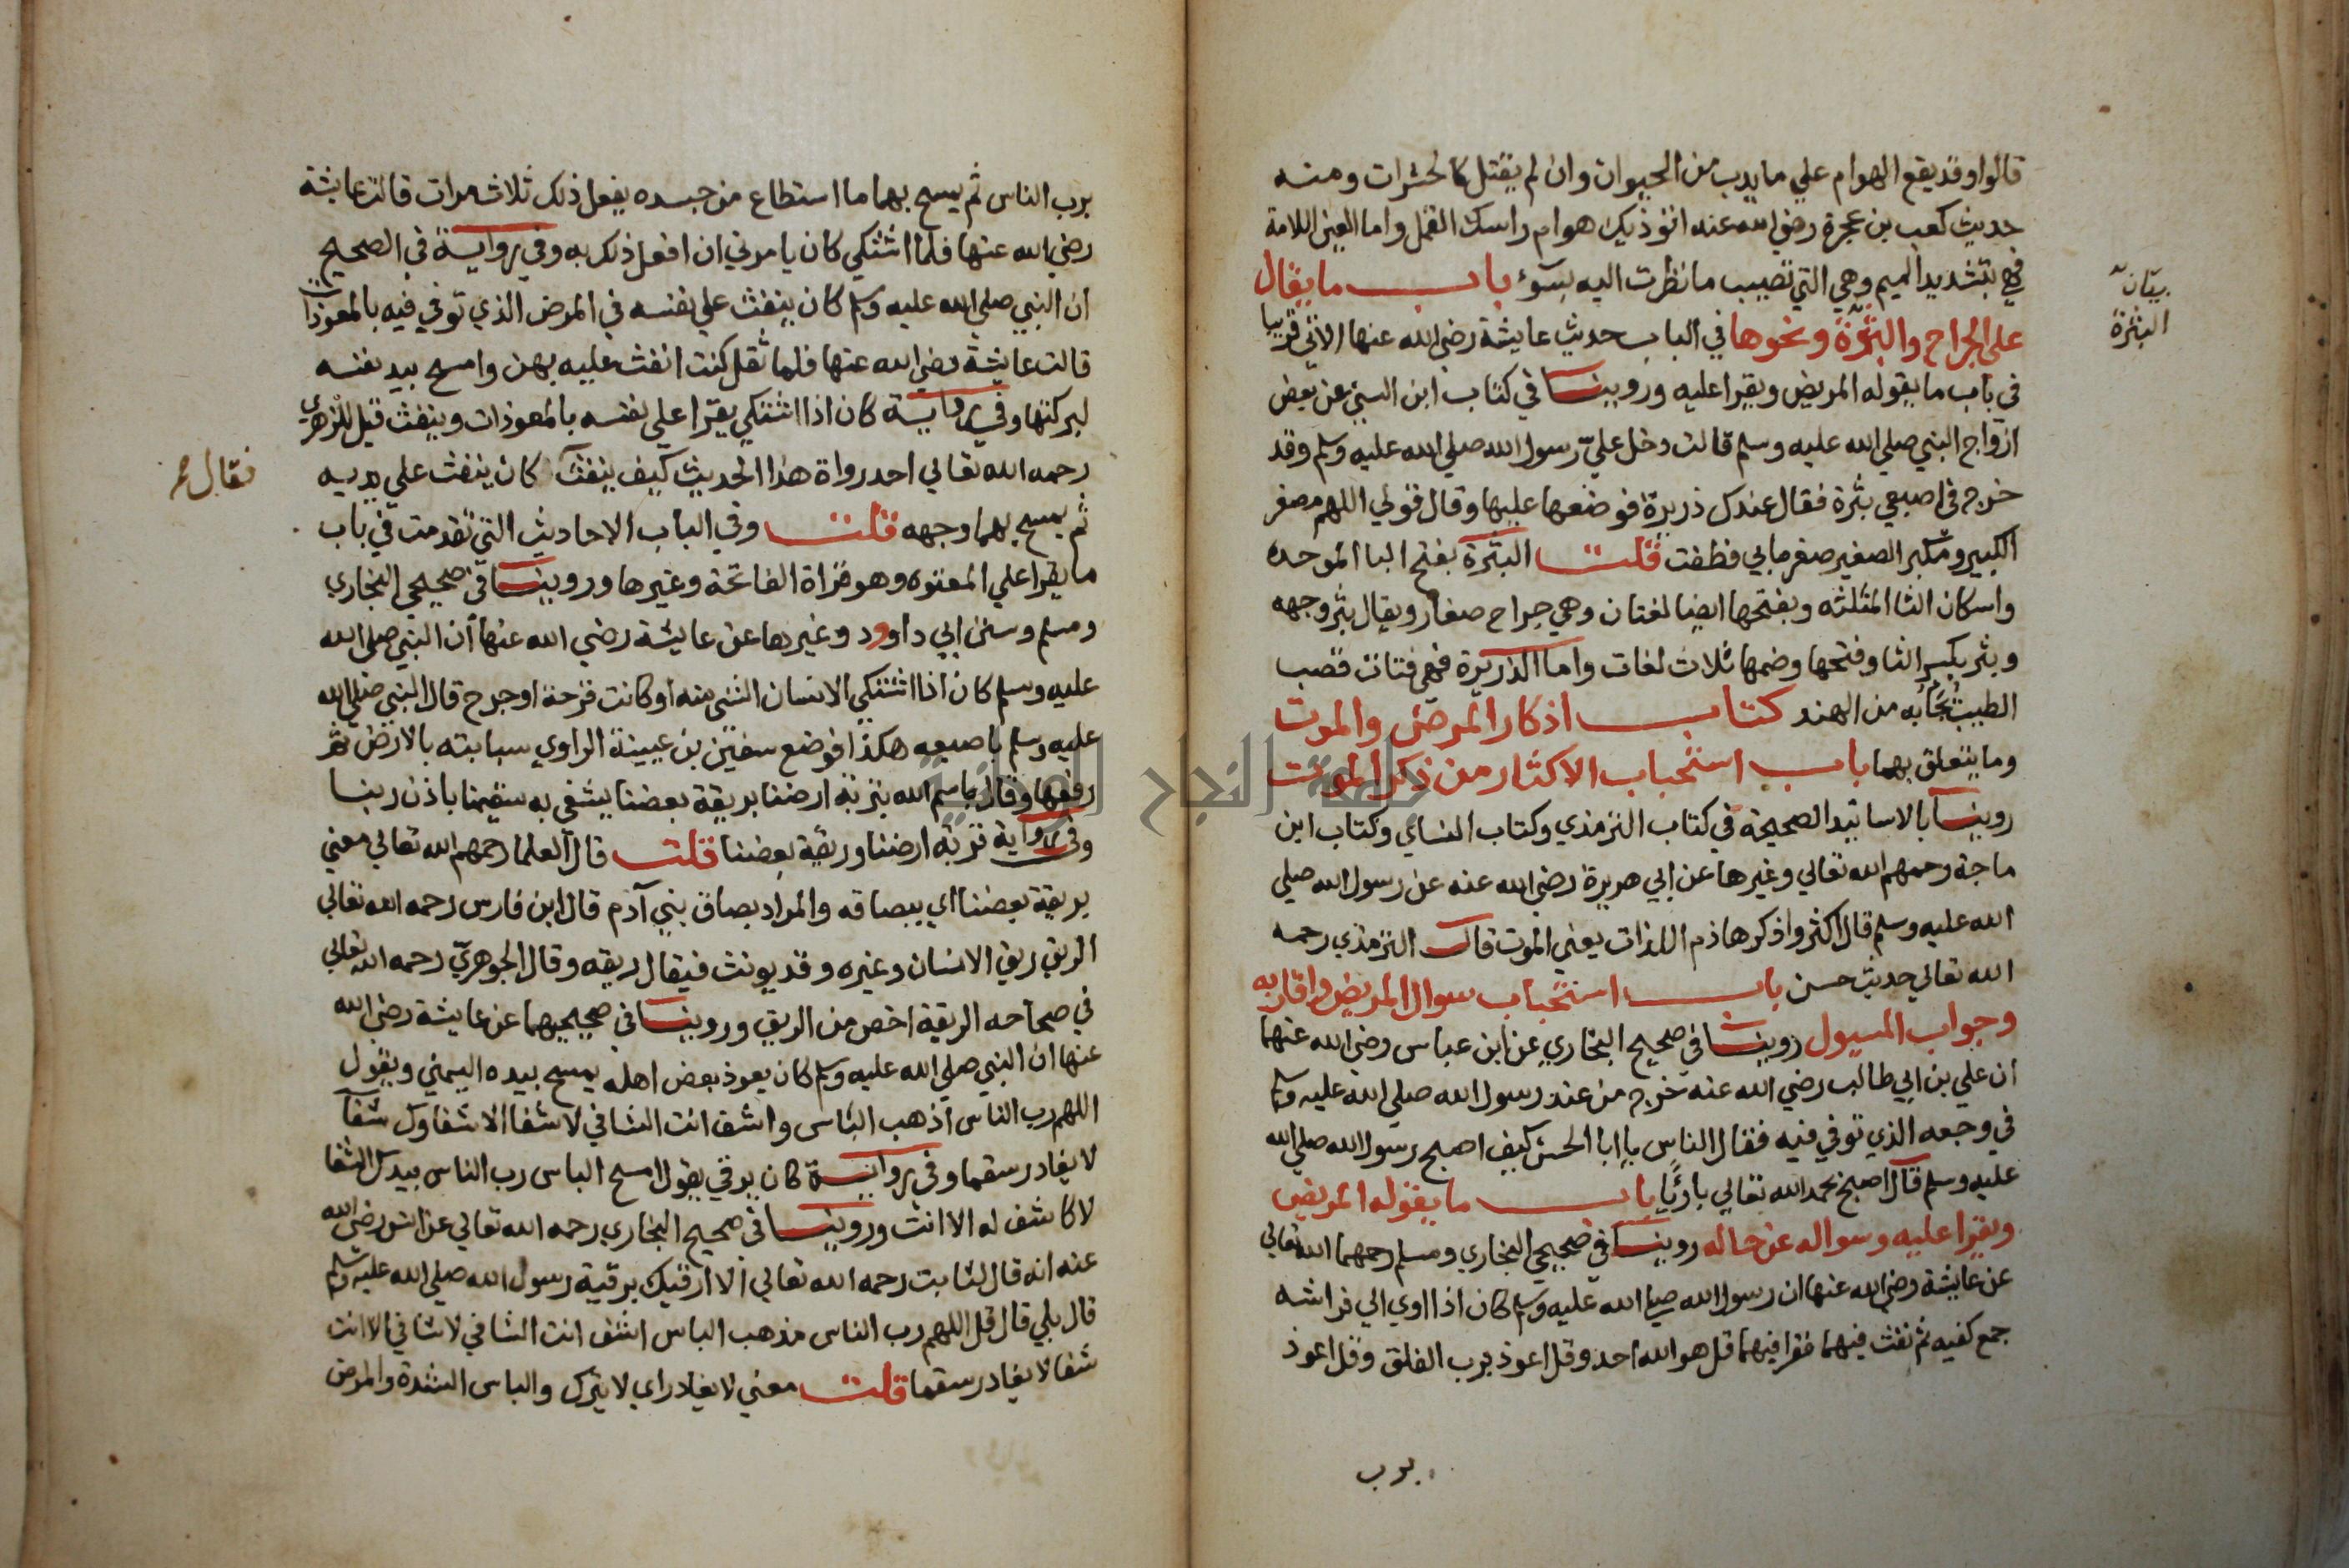 قالوا وقد يقع الهوام علي ما يدب من الحيوان وان لم يقتل كالحشرات ومنه
حديث كعب بن عجرة رضي الله عنه اتؤذيك هوام راسك القمل واما العين اللامة
فهي بتشديد الميم وهي التي تصيب ما نظرت اليه بسوء باب ما يقال
علي الجراح والبثرة ونحوها في الباب حديث عايشة رضي الله عنها الاتي قريبا
في باب ما يقوله المريض ويقرا عليه وروينا في كتاب ابن السني عن بعض
ازواج النبي صلي الله عليه وسلم قالت دخل علي رسول الله صلي الله عليه وسلم وقد
خرج في اصبعي بثرة فقال عندك ذريرة فوضعها عليها وقال قولي اللهم مصغر
الكبير ومكبر الصغير صغر ما بي فطفت قلت البثرة بفتح البا الموحدة
واسكان الثا المثلثه وبفتحها ايضا لغتان وهي جراح صغار ويقال بثر وجهه
وبثر بكسر الثا وفتحها وضمها ثلاث لغات واما الذريرة فهي فتات قصب
الطيب يجابه من الهند كتاب اذكار المرضي والموت
وما يتعلق بهما باب استحباب الاكثار من ذكر الموت
روينا بالاسانيد الصحيحة في كتاب الترمذي وكتاب النساي وكتاب ابن
ماجة رحمهم الله تعالي وغيرها عن ابي هريرة رضي الله عنه عن رسول الله صلي
الله عليه وسلم قال اكثروا ذكر هاذم اللذات يعني الموت قال الترمذي رحمه
الله تعالي حديث حسن باب استحباب سوال المريض واقاربه
وجواب المسيول روينا في صحيح البخاري عن ابن عباس رضي الله عنهما
ان علي بن ابي طالب رضي الله عنه خرج من عند رسول الله صلي الله عليه وسلم
في وجعه الذي توفي فيه فقال الناس يا ابا الحسن كيف اصبح رسول الله صلي الله
عليه وسلم قال اصبح بحمد الله تعالي باريا باب ما يقوله المريض
ويقرا عليه وسواله عن حاله روينا في صحيحي البخاري ومسلم رحمهما الله تعالي
عن عايشة رضي الله عنها ان رسول الله صلي الله عليه وسلم كان اذا اوي الي فراشه
جمع كفيه ثم نفث فيهما فقرا فيهما قل هو الله احد وقل اعوذ برب الفلق وقل اعوذ
برب
بيان
البثرة
برب الناس ثم يمسح بهما ما استطاع من جسده يفعل ذلك ثلاث مرات قالت عايشة
رضي الله عنها فلما اشتكي كان يامرني ان افعل ذلك به وفي رواية في الصحيح
ان النبي صلي الله عليه وسلم كان ينفث علي نفسه في المرض الذي توفي فيه بالمعوذات
قالت عايشة رضي الله عنها فلما ثقل كنت انفث عليه بهن وامسح بيد نفسه
لبركتها وفي رواية كان اذا اشتكي يقرا علي نفسه بالمعوذات وينفث قيل للزهري
رحمه الله تعالي احد رواة هذا الحديث كيف ينفث كان ينفث علي يديه
فقال
ثم يمسح بهما وجهه قلت وفي الباب الاحاديث التي تقدمت في باب
ما يقرا علي المعتوه وهو قراة الفاتحة وغيرها وروينا في صحيحي البخاري
ومسلم وسنن ابي داوود وغيرها عن عايشة رضي الله عنها ان النبي صلي الله
عليه وسلم كان اذا اشتكي الانسان الشي منه او كانت قرحة او جرح قال النبي صلي الله
عليه وسلم باصبعه هكذا فوضع سفين بن عيينة الراوي سبابته بالارض ثم
رفعها وقال باسم الله تربة ارضنا بريقة بعضنا يشفي به سقيمنا باذن ربنا
وفي رواية تربة ارضنا وريقة بعضنا قلت قال العلما رحمهم الله تعالي معني
بريقة بعضنا اي ببصاقه والمراد بصاق بني آدم قال ابن فارس رحمه الله تعالي
الريق ريق الانسان وغيره وقد يونث فيقال ريقه وقال الجوهري رحمه الله تعالي
في صحاحه الريقة اخص من الريق وروينا في صحيحيهما عن عايشة رضي الله
عنها ان النبي صلي الله عليه وسلم كان يعوذ بعض اهله يمسح بيده اليمني ويقول
اللهم رب الناس اذهب الباس واشف انت الشافي لا شفا الا شفاوك شفآ
لا يغادر سقما وفي رواية كان يرقي يقول امسح الباس رب الناس بيدك الشفا
لا كاشف له الا انت وروينا في صحيح البخاري رحمه الله تعالي عن انس رضي الله
عنه انه قال لثابت رحمه الله تعالي الا ارقيك برقية رسول الله صلي الله عليه وسلم
قال بلي قال قل اللهم رب الناس مذهب الباس اشف انت الشافي لا شافي الا انت
شفا لا يغادر سقما قلت معني لا يغادر اي لا يترك والباس الشدة والمرض
جامعة النجاح الوطنية